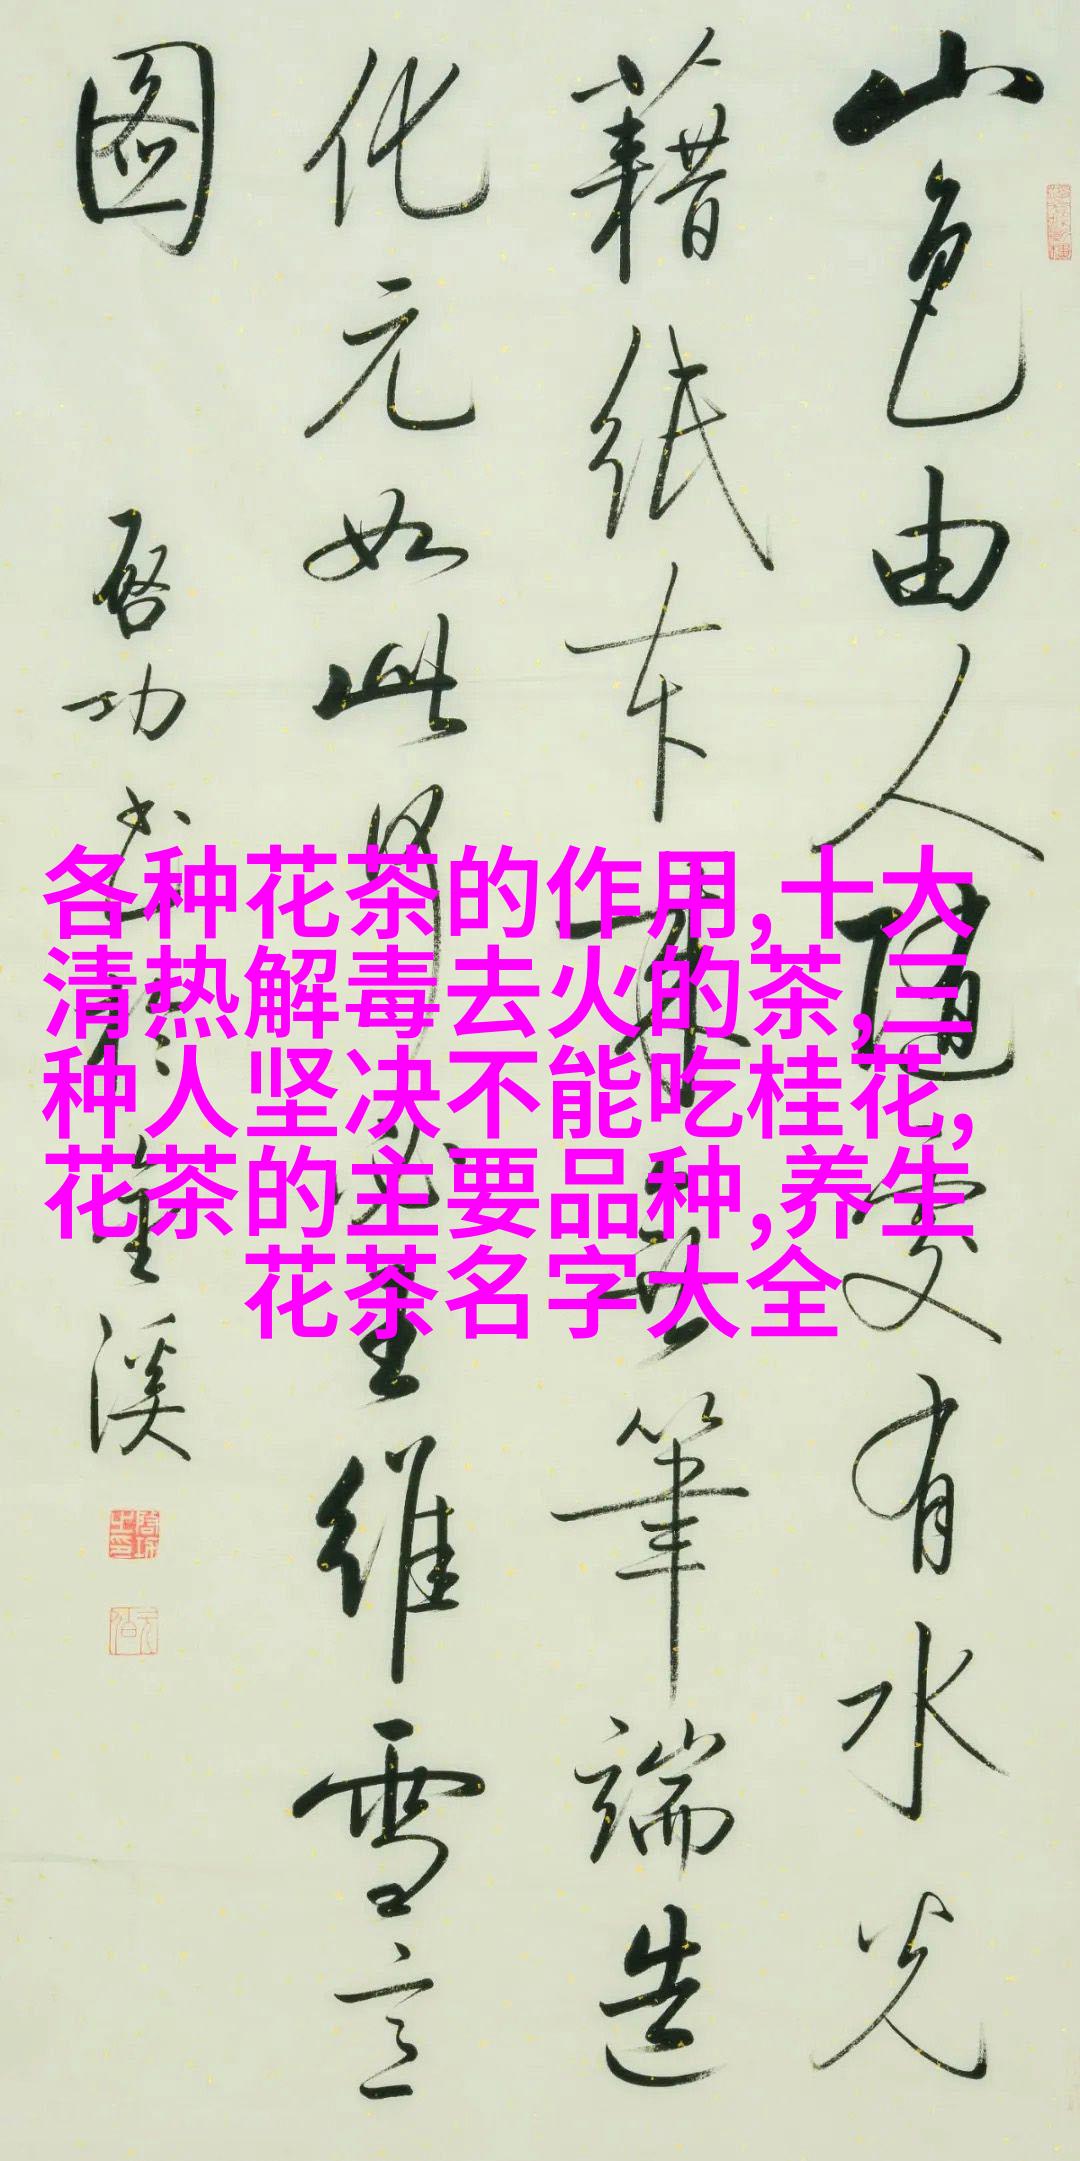 山色由人随處有水光
藉紙本来無筆端造
化元如此何必王維雪意
图
启功
溪
各种花茶的作用,十大
清热解毒去火的茶,三
种人坚决不能吃桂花,
花茶的主要品种,养生
花茶名字大全